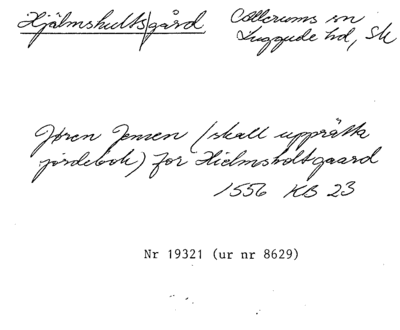 Hjälmshults|gård Allerums sn
Luggude hd, Sk
Jören Jensen (skall upprätta
jordebok) for Hielmsholtgaard
1556 KB 23
Nr 19321 (ur nr 8629)